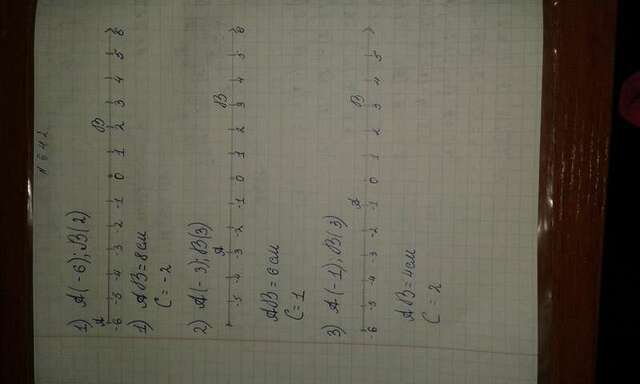 № 642
1) A(-6); B(2)
A B
-6 -5 -4 -3 -2 -1 0 1 2 3 4 5 6
1) AB = 8 см
C = -2
2) A(-3); B(3)
A B
-5 -4 -3 -2 -1 0 1 2 3 4 5 6
AB = 6 см
C = 1
3) A(-1); B(3)
A B
-6 -5 -4 -3 -2 -1 0 1 2 3 4 5
AB = 4 см
C = 2